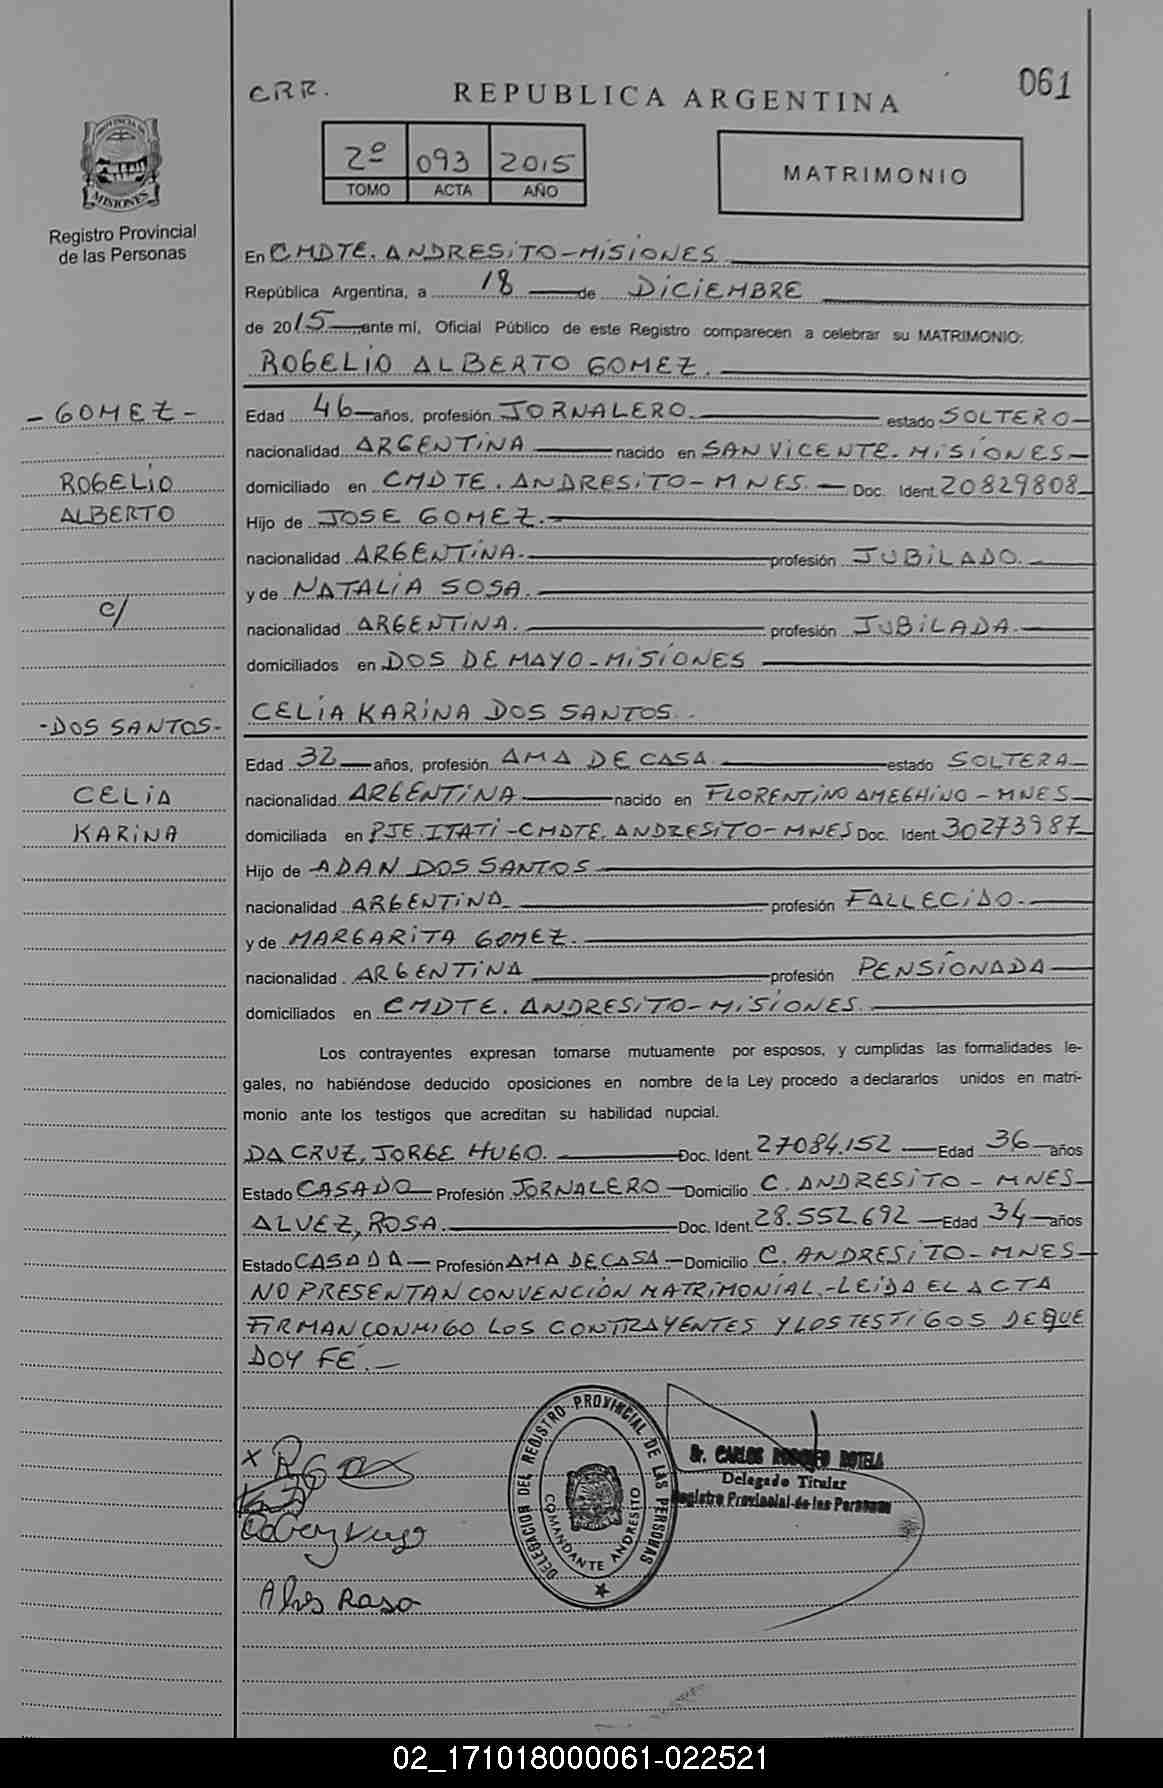 CRR.
REPUBLICA ARGENTINA
061
2º 093 2015
TOMO ACTA AÑO
MATRIMONIO
PROVINCIA DE
MISIONES
Registro Provincial
de las Personas
En CMDTE. ANDRESITO-MISIONES
República Argentina, a 18 de DICIEMBRE
de 2015 ante mí, Oficial Público de este Registro comparecen a celebrar su MATRIMONIO:
ROGELIO ALBERTO GOMEZ.
- GOMEZ -
Edad 46 años, profesión JORNALERO. estado SOLTERO
nacionalidad ARGENTINA nacido en SAN VICENTE. MISIONES
ROGELIO
domiciliado en CMDTE. ANDRESITO-MNES. Doc. Ident. 20829808
ALBERTO
Hijo de JOSE GOMEZ.
nacionalidad ARGENTINA. profesión JUBILADO.
y de NATALIA SOSA.
c/
nacionalidad ARGENTINA. profesión JUBILADA.
domiciliados en DOS DE MAYO-MISIONES
CELIA KARINA DOS SANTOS.
-DOS SANTOS-
Edad 32 años, profesión AMA DE CASA estado SOLTERA
CELIA
nacionalidad ARGENTINA nacido en FLORENTINO AMEGHINO-MNES
KARINA
domiciliada en PJE. ITATI-CMDTE. ANDRESITO-MNES Doc. Ident. 30273987
Hijo de ADAN DOS SANTOS
nacionalidad ARGENTINA profesión FALLECIDO.
y de MARGARITA GOMEZ.
nacionalidad ARGENTINA profesión PENSIONADA
domiciliados en CMDTE. ANDRESITO-MISIONES
Los contrayentes expresan tomarse mutuamente por esposos, y cumplidas las formalidades le-
gales, no habiéndose deducido oposiciones en nombre de la Ley procedo a declararlos unidos en matri-
monio ante los testigos que acreditan su habilidad nupcial.
DA CRUZ, JORGE HUGO. Doc. Ident. 27084.152 Edad 36 años
Estado CASADO Profesión JORNALERO Domicilio C. ANDRESITO - MNES
ALVEZ, ROSA. Doc. Ident. 28.552.692 Edad 34 años
Estado CASADA Profesión AMA DE CASA Domicilio C. ANDRESITO-MNES
NO PRESENTAN CONVENCIÓN MATRIMONIAL.-LEIDA EL ACTA
FIRMAN CONMIGO LOS CONTRAYENTES Y LOS TESTIGOS DE QUE
DOY FE.-
DELEGACION DEL REGISTRO PROVINCIAL DE LAS PERSONAS
COMANDANTE ANDRESITO
Dr. CARLOS RODRIGO ROTELA
Delegado Titular
Registro Provincial de las Personas
X
Rosa
02_171018000061-022521